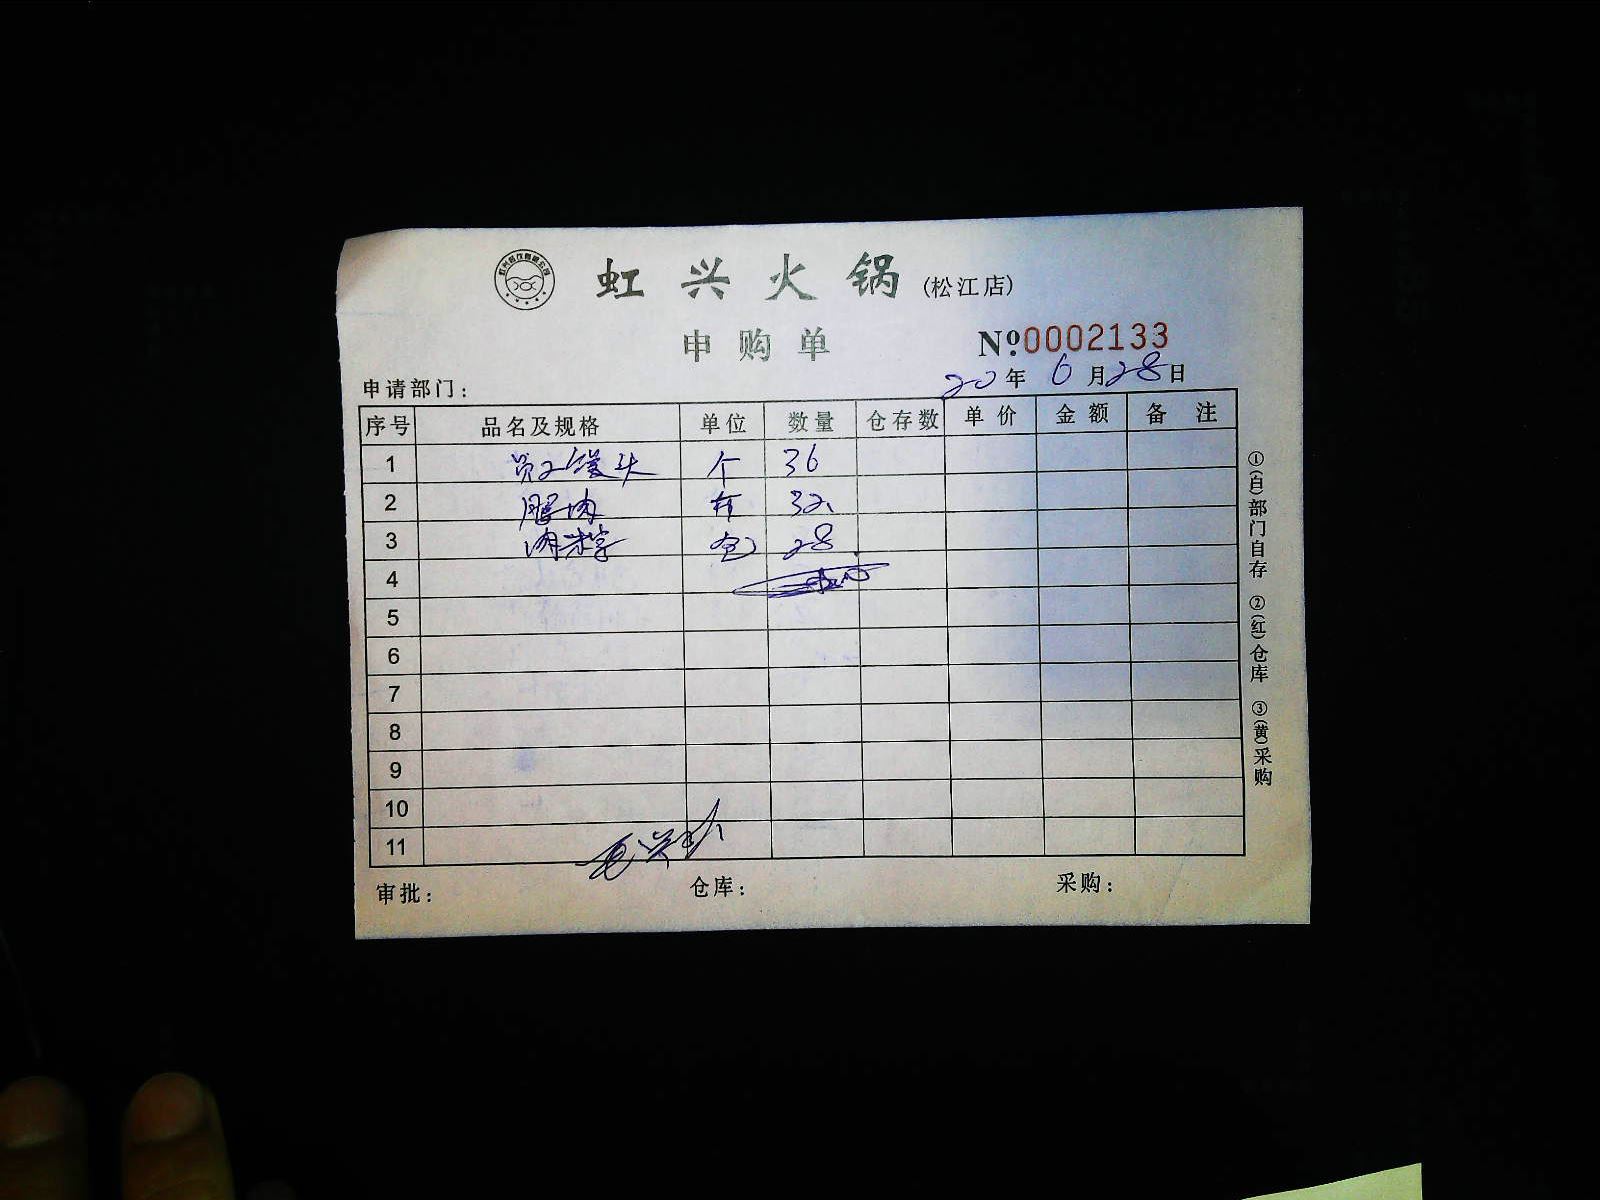 虹兴火锅(松江店)
申购单
№0002133
20年6月28日
申请部门：
序号 品名及规格 单位 数量 仓存数 单价 金额 备注
1 员工馒头 个 36
2 腊肉 32
3 包 28
4
5
6
7
8
9
10
11
审批： 仓库： 采购：
①(白)部门自存 ②(红)仓库 ③(黄)采购